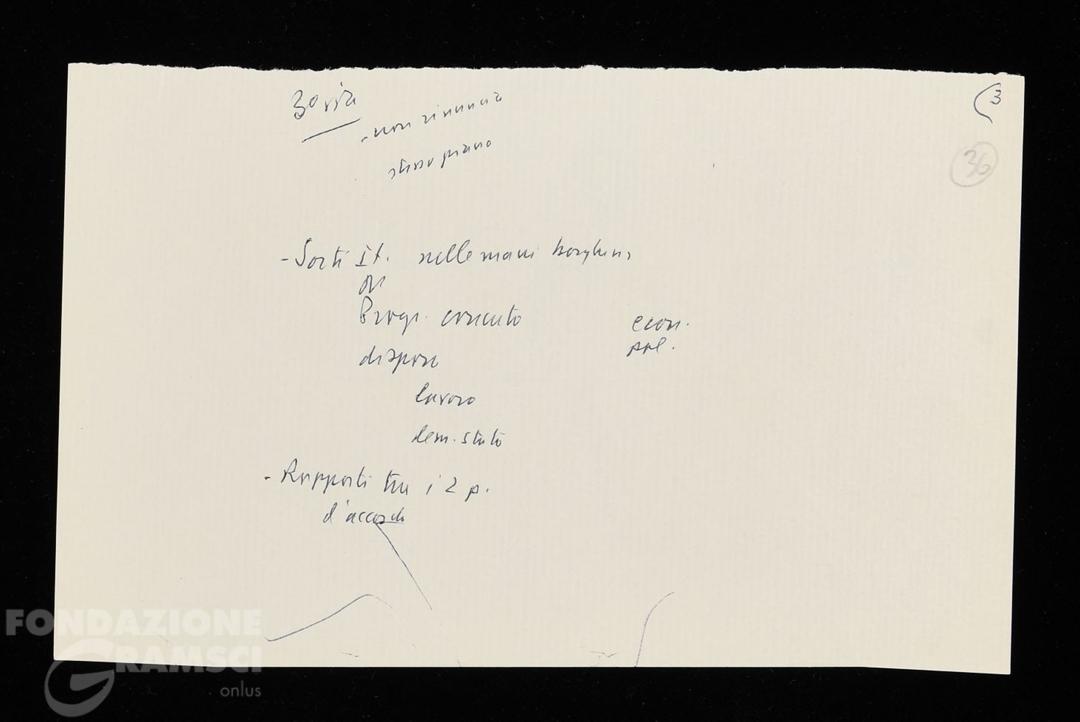 3ª via
- non rinuncia
stesso piano
(3
36
- Sorti It. nelle mani borghes.
Progr. concreto
econ.
lavoro
dem. stato
- Rapporti tra i 2 p.
d'accordo
FONDAZIONE
GRAMSCI
onlus